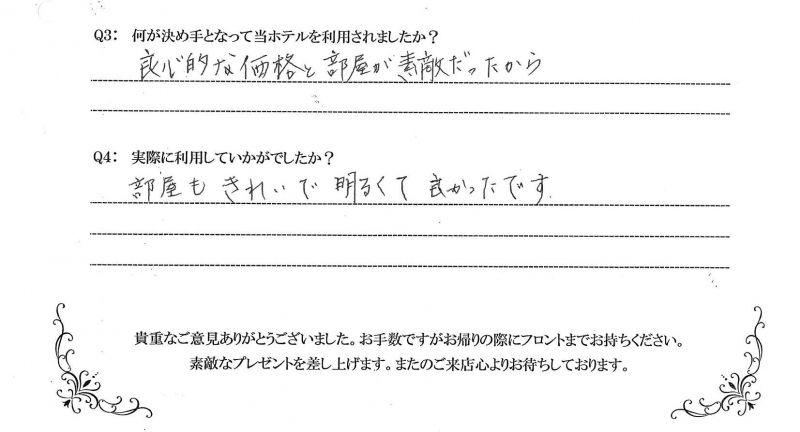 Q3: 何が決め手となって当ホテルを利用されましたか？
良心的な価格と部屋が素敵だったから
Q4: 実際に利用していかがでしたか？
部屋もきれいで明るくて良かったです.
貴重なご意見ありがとうございました。お手数ですがお帰りの際にフロントまでお持ちください。
素敵なプレゼントを差し上げます。またのご来店心よりお待ちしております。